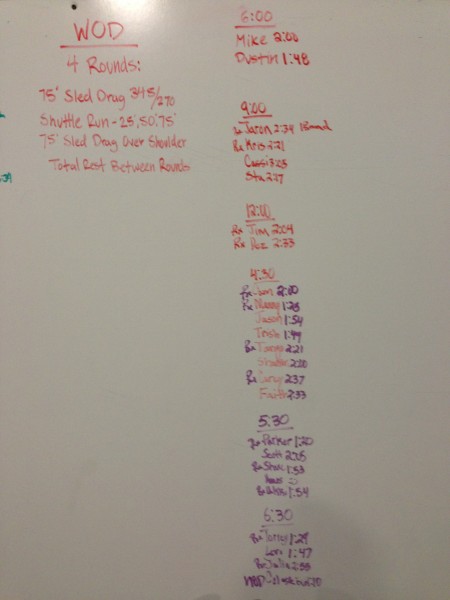 WOD
4 Rounds:
75' Sled Drag 345/270
Shuttle Run - 25', 50', 75'
75' Sled Drag Over Shoulder
Total Rest Between Rounds
6:00
Mike 2:00
Dustin 1:48
9:00
Rx Jason 2:34
Rx Kris 2:21
Cassi 3:03
Sta 2:27
12:00
Rx Tim 2:04
Rx 2:33
4:30
Rx 2:00
Rx 1:28
Jason 1:54
Trish 1:49
Rx 2:21
2:20
Rx 2:37
Faith 2:33
5:30
Rx Parker 1:20
Scott 2:05
Rx Steve 1:53
Rx 1:54
6:30
Rx 1:29
Lori 1:47
Rx Julia 2:38